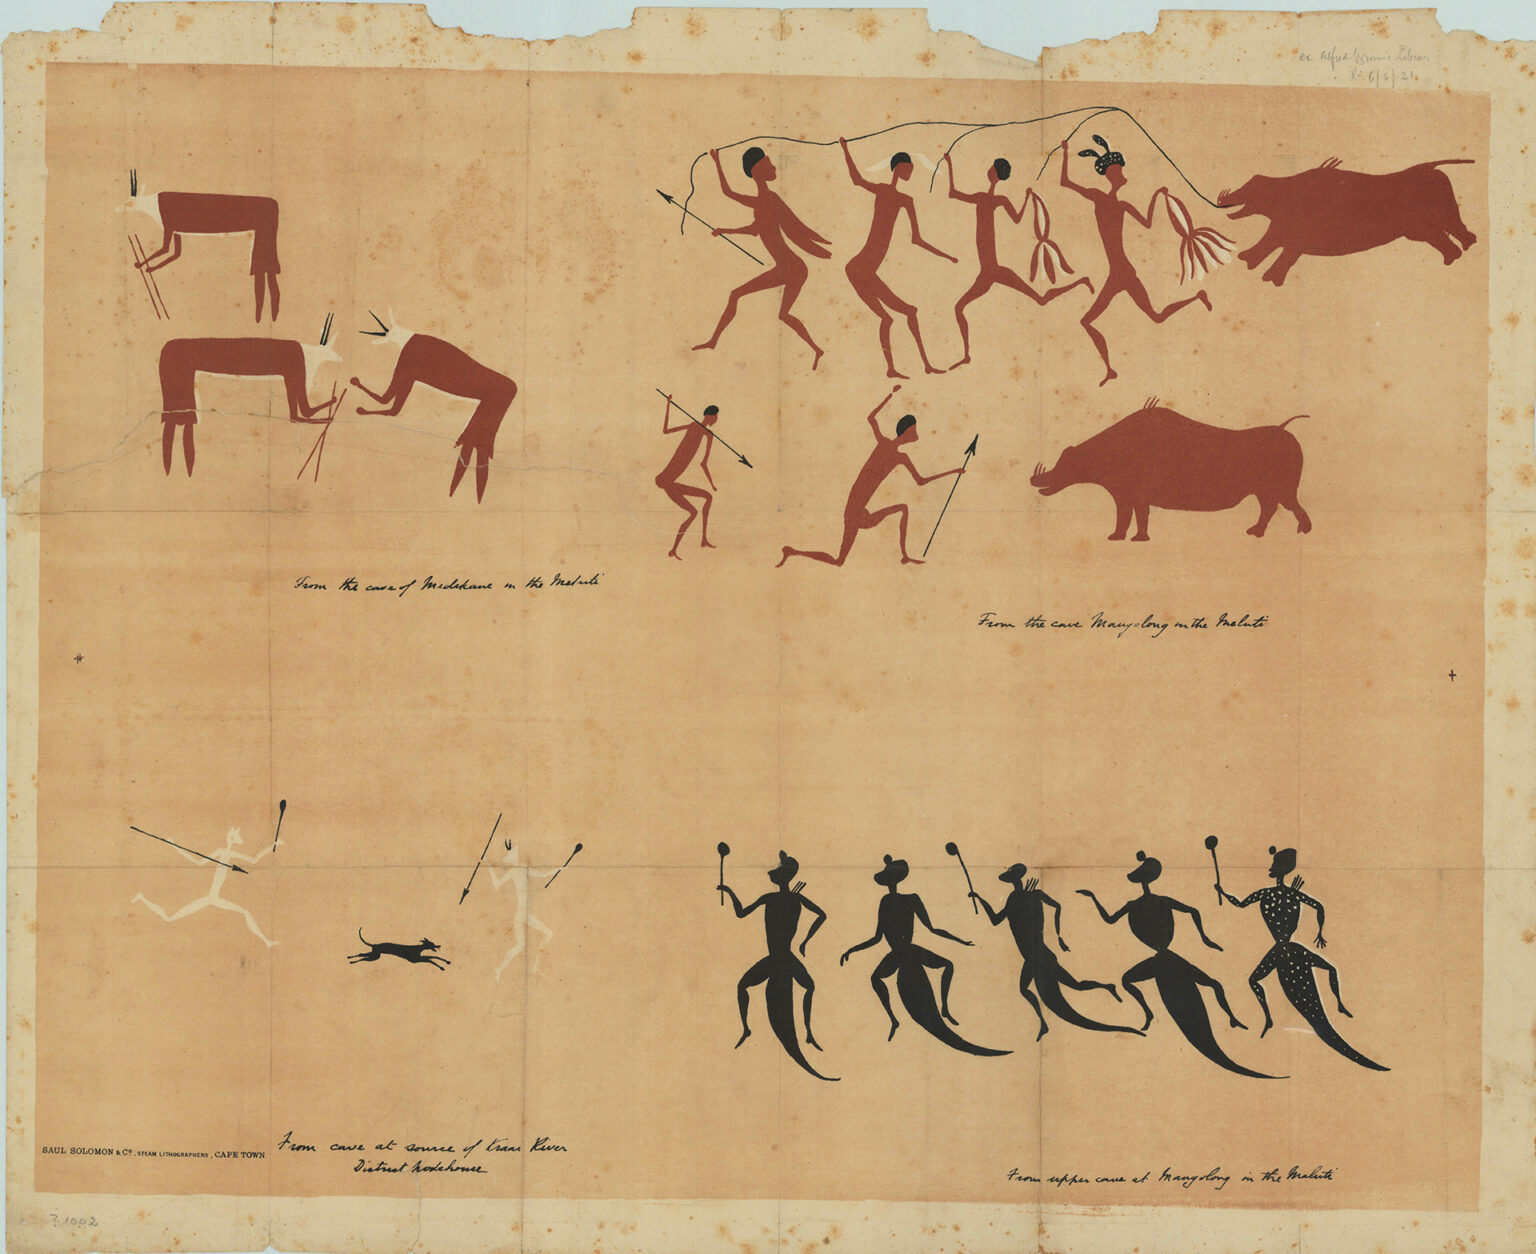 ex Alfred
6/8/21
From the cave of Medekane in the Maluti
From the cave Mangolong in the Maluti
SAUL SOLOMON & Co., STEAM LITHOGRAPHERS, CAPE TOWN.
From cave at source of Kraai River
District Wodehouse
From upper cave at Mangolong in the Maluti
? 1002